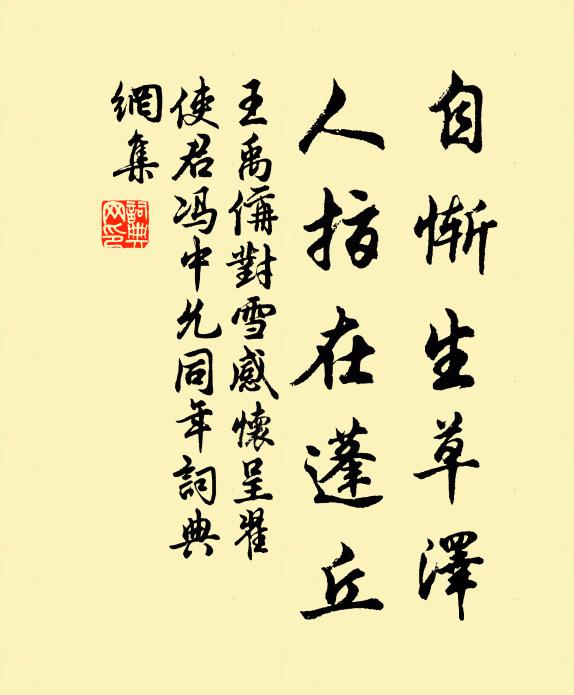 自慚生草澤
人指在蓬丘
王禹偁對雪感懷呈翟
使君馮中允同年詞典
網集
詞典
网印